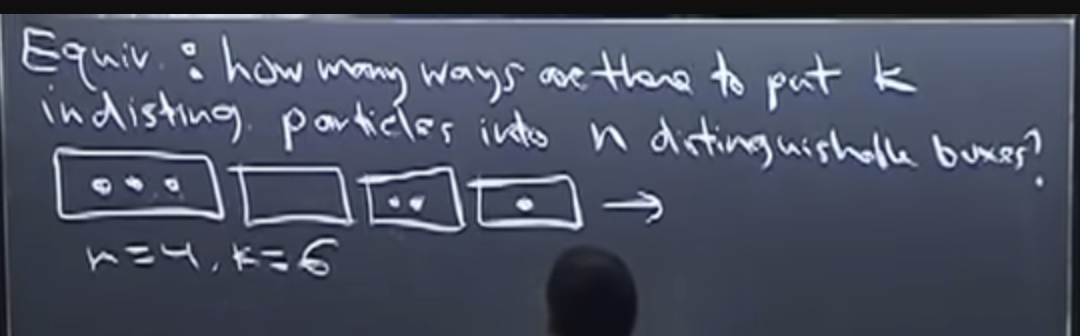 Equiv. : how many ways are there to put k
indisting. particles into n distinguishable boxes?
→
n=4, k=6